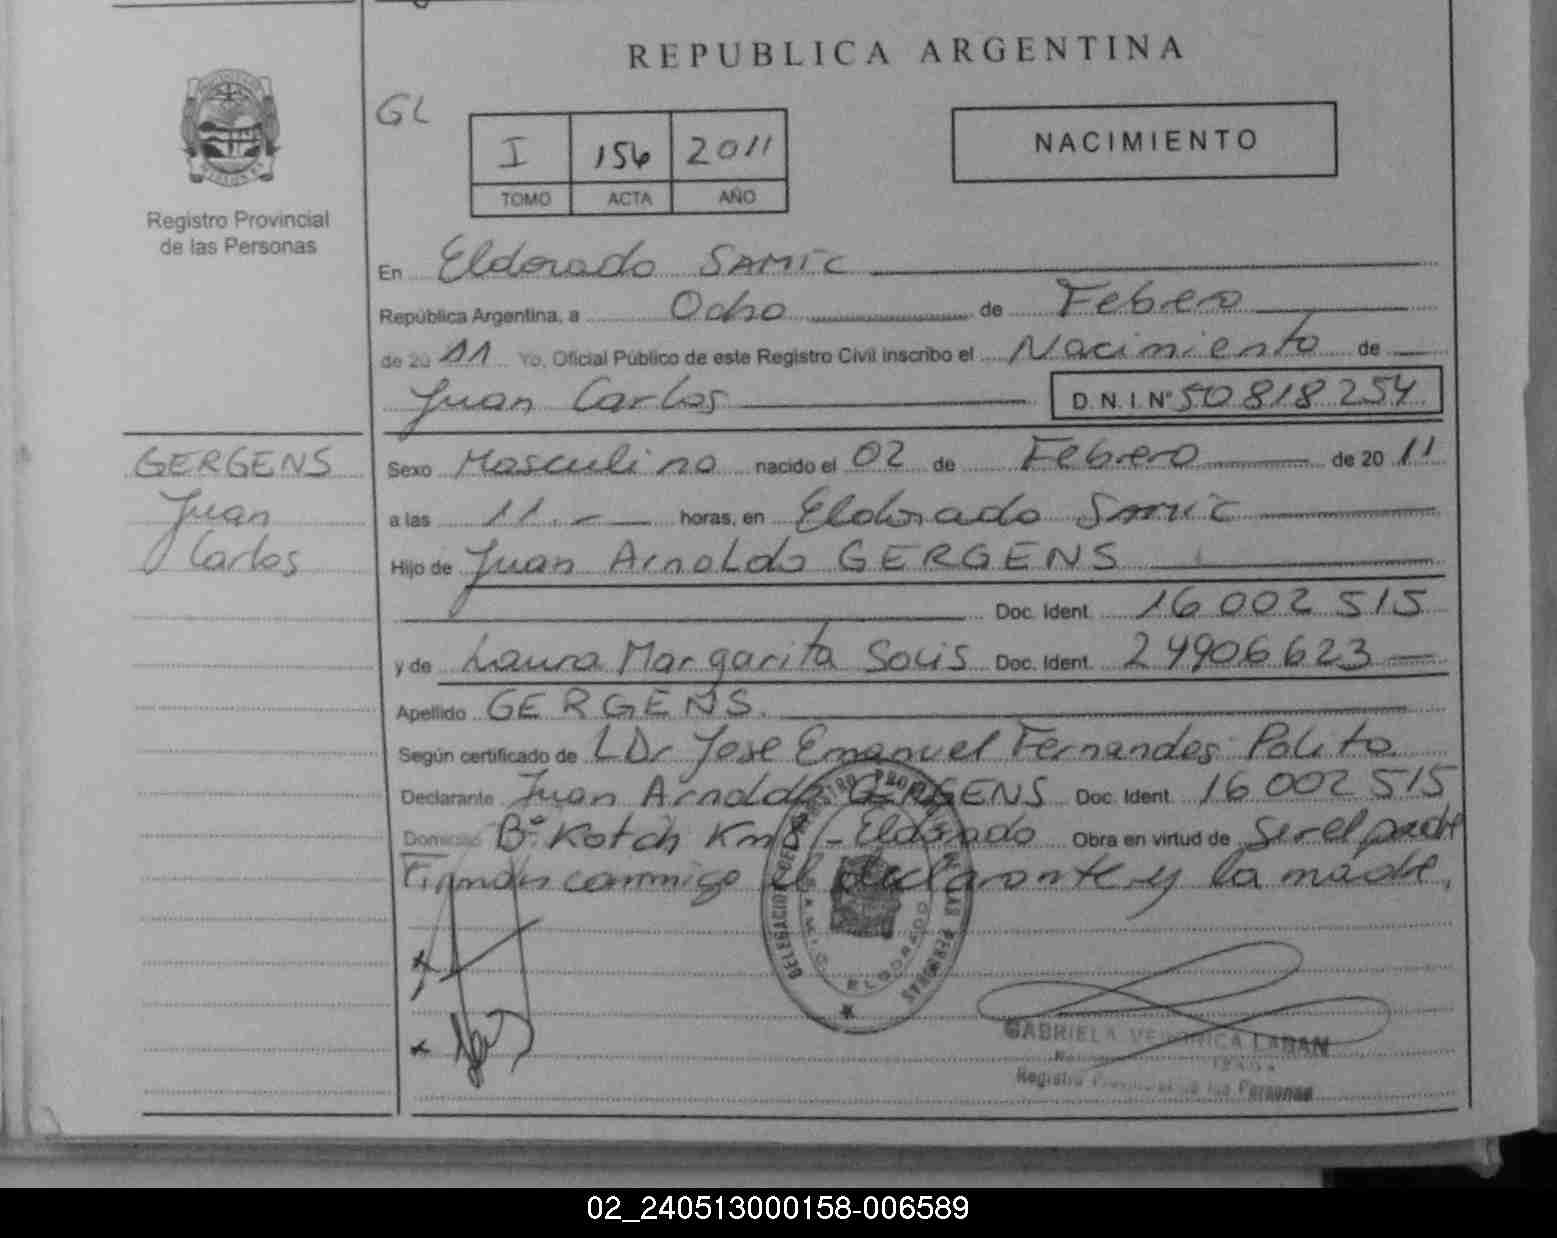 REPUBLICA ARGENTINA
GL
I 156 2011
TOMO ACTA AÑO
NACIMIENTO
Registro Provincial
de las Personas
En Eldorado SAMIC
República Argentina, a Ocho de Febrero
de 2011 Yo, Oficial Público de este Registro Civil inscribo el Nacimiento de
Juan Carlos D.N.I. Nº 50818254
GERGENS
Juan
Carlos
Sexo Masculino nacido el 02 de Febrero de 2011
a las 11.- horas, en Eldorado Samic
Hijo de Juan Arnoldo GERGENS
Doc. Ident. 16 002 515
y de Laura Margarita Solis Doc. Ident. 24906623
Apellido GERGENS.
Según certificado de LDr Jose Emanuel Fernandes Polito
Declarante Juan Arnoldo GERGENS Doc. Ident. 16 002 515
Domicilio Bº Kotch Km 8 - Eldorado Obra en virtud de Ser el padre
Firman conmigo el declarante y la madre.
DELEGACION DEL REGISTRO PROVINCIAL DE LAS PERSONAS
S.A.M.I.C. ELDORADO
GABRIELA VERONICA LABAN
Registro Provincial de las Personas
02_240513000158-006589